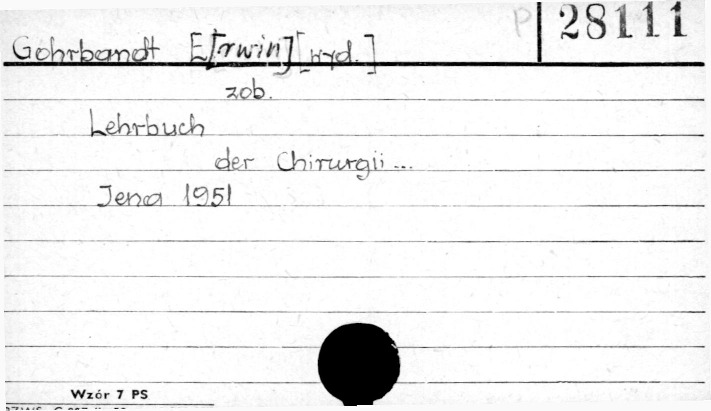 P 28111
Gohrbandt E[rwin] [wyd.]
zob.
Lehrbuch
der Chirurgii...
Jena 1951
Wzór 7 PS